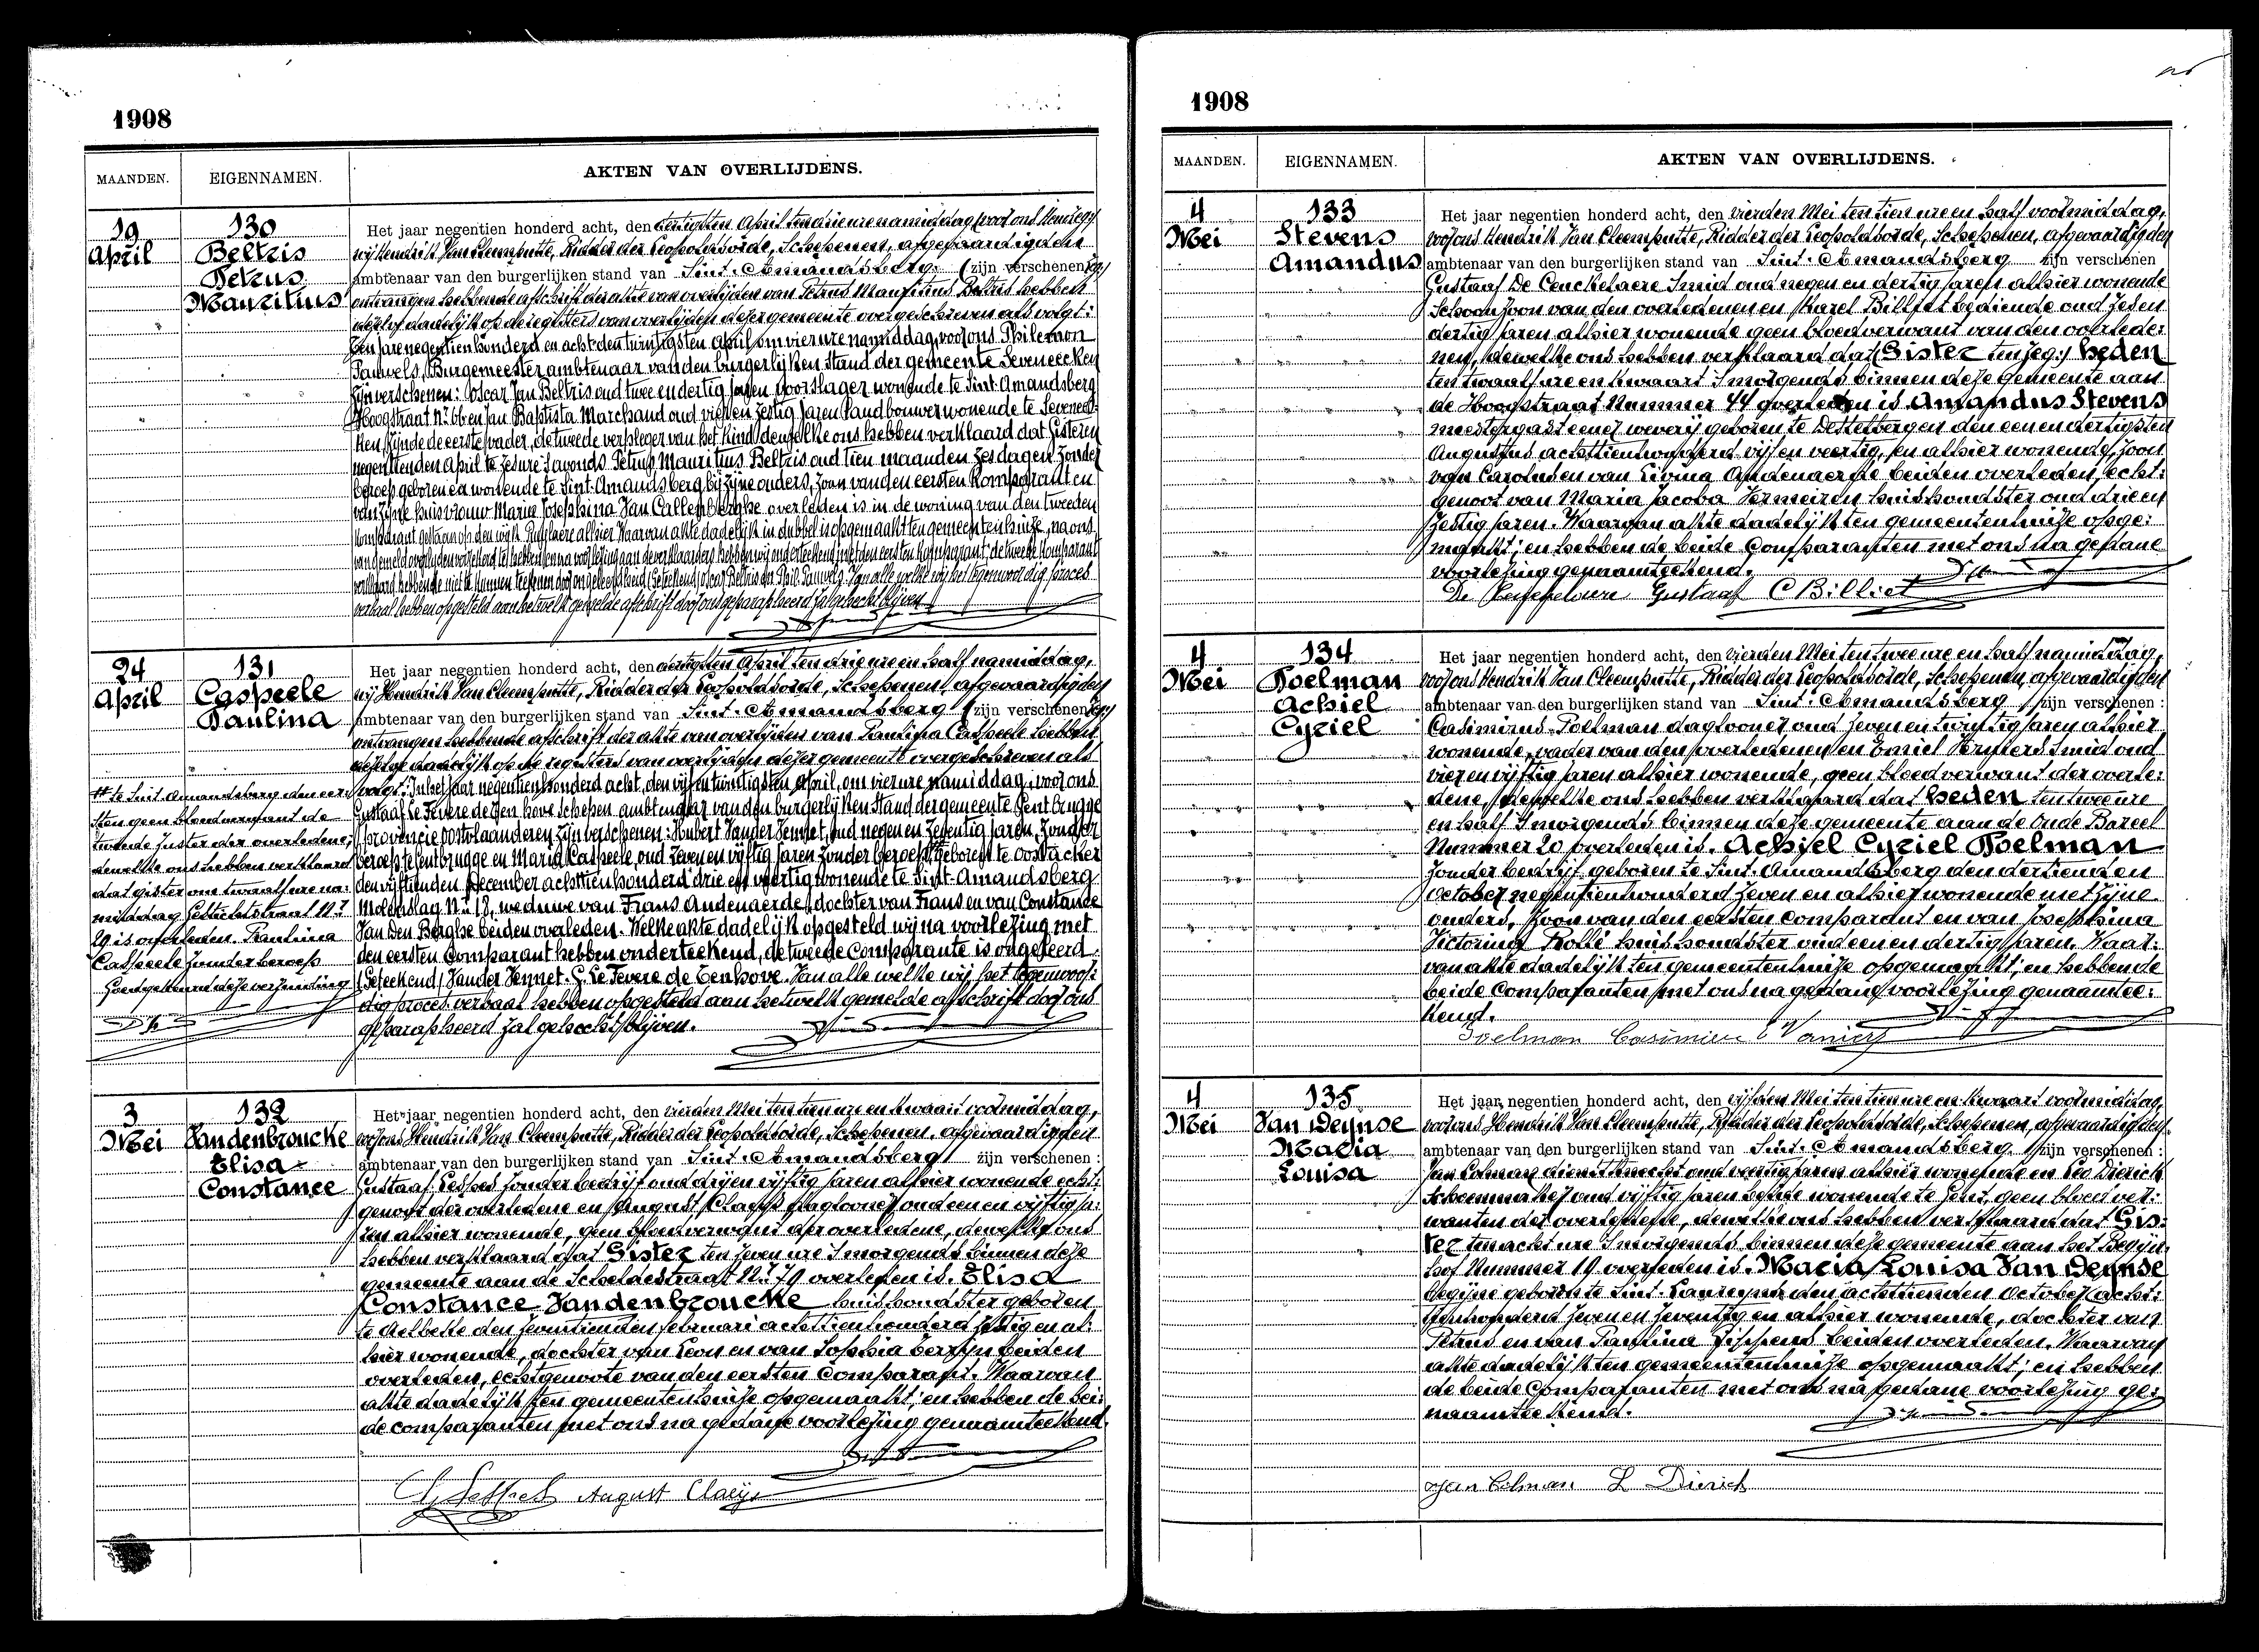 1908
MAANDEN. EIGENNAMEN. AKTEN VAN OVERLIJDENS.
19 April
130
Beltris
Petrus
Mauritius
Het jaar negentien honderd acht, den dertigsten April ten drie ure namiddag
wij Hendrik Van Cleemputte, Ridder der Leopoldsorde, Schepenen, afgevaardigden
ambtenaar van den burgerlijken stand van Sint-Amandsberg (zijn verschenen
ontvangen hebbende afschrift der akte van overlijden van Petrus Mauritius Beltris hebben
dezelve dadelijk op de registers van overlijden dezer gemeente overgeschreven als volgt:
Ten jare negentien honderd en acht den twintigsten April om vier ure namiddag, voor ons Philemon
Pauwels, Burgemeester ambtenaar van den burgerlijken stand der gemeente Seveneecken
zijn verschenen: Oscar Jan Beltris oud twee en dertig jaren wonende te Sint-Amandsberg
Hoogstraat No 66 en Jan Baptista Marchand oud vier en zestig jaren landbouwer wonende te Seveneec-
ken, zijnde de eerste vader, de tweede verpleger van het kind, dewelke ons hebben verklaard dat Gisteren
negentienden April te zes ure s'avonds Petrus Mauritius Beltris oud tien maanden zes dagen zonder
beroep geboren en wonende te Sint-Amandsberg bij zijne ouders, zoon van den eersten komparant en
van zijne huisvrouw Maria Josephina Van Callenberghe overleden is in de woning van den tweeden
komparant gestaan op den wijk alhier Waarvan akte dadelijk in dubbel is opgemaakt ten gemeentenhuize, na ons
verbaal hebben opgesteld aan hetwelk gemelde afschrift door ons geparapheerd zal gehecht blijven
24 April
131
Caspeele
Paulina
Het jaar negentien honderd acht, den dertigsten April ten drie ure en half namiddag,
wij Hendrik Van Cleemputte, Ridder der Leopoldsorde, Schepenen, afgevaardigden
ambtenaar van den burgerlijken stand van Sint-Amandsberg (zijn verschenen
ontvangen hebbende afschrift der akte van overlijden van Paulina Caspeele hebben
dezelve dadelijk op de registers van overlijden dezer gemeente overgeschreven als
volgt: In het jaar negentien honderd acht, den vijf en twintigsten April, om vier ure namiddag, voor ons
Gustaaf Le Fevere de Ten Hove Schepen, ambtenaar van den burgerlijken stand der gemeente Gentbrugge
provincie Oostvlaanderen zijn verschenen: Hubert Vander Vennet, oud negen en zestig jaren, zonder
beroep te Gentbrugge en Maria Caspeele, oud zeven en vijftig jaren zonder beroep geboren te Oostacker
den vijftienden December achttien honderd drie en veertig wonende te Sint-Amandsberg
Molenslag No 18, weduwe van Frans Audenaerde, dochter van Frans en van Constance
Van Den Berghe beiden overleden. Welke akte dadelijk opgesteld wij na voorlezing met
den eersten Comparant hebben onderteekend, de tweede Comparante is ongeleerd.
(Geteekend) Vander Vennet. G. Le Fevere de Tenhove. Van alle welke wij het tegenwoor-
dig proces verbaal hebben opgesteld aan hetwelk gemelde afschrift door ons
geparapheerd zal gehecht blijven.
te Sint Amandsberg den eer-
sten geen bloedverwant de
tweede zuster der overledene;
dewelke ons hebben verklaard
dat gister om twaalf ure na-
middag Gestichtstraat No
29 is overleden. Paulina
Caspeele zonder beroep
Goedgekeurd deze verzending
3 Mei
132
Vandenbroucke
Elisa
Constance
Het jaar negentien honderd acht, den vierden Mei ten tien ure en kwaart voormiddag,
voor ons Hendrik Van Cleemputte, Ridder der Leopoldsorde, Schepenen, afgevaardigden
ambtenaar van den burgerlijken stand van Sint-Amandsberg zijn verschenen:
Gustaaf Lesses zonder bedrijf oud drij en vijftig jaren alhier wonende echt-
genoot der overledene en August Claeys daglooner oud een en vijftig ja-
ren alhier wonende, geen bloedverwant der overledene, dewelke ons
hebben verklaard dat Gister ten zeven ure s'morgends binnen deze
gemeente aan de Scheldestraat No 79 overleden is. Elisa
Constance Vandenbroucke huishoudster geboren
te Aelbeke den zeventienden februari achttien honderd zestig en al-
hier wonende, dochter van Leon en van Sophia beiden
overleden, echtgenoote van den eersten Comparant. Waarvan
akte dadelijk ten gemeentenhuize opgemaakt; en hebben de bei-
de comparanten met ons na gedane voorlezing genaamteekend.
August Claeys
1908
MAANDEN. EIGENNAMEN. AKTEN VAN OVERLIJDENS.
4 Mei
133
Stevens
Amandus
Het jaar negentien honderd acht, den vierden Mei ten tien ure en half voormiddag,
voor ons Hendrik Van Cleemputte, Ridder der Leopoldsorde, Schepenen, afgevaardigden
ambtenaar van den burgerlijken stand van Sint-Amandsberg zijn verschenen
Gustaaf De Ceuckelaere Smid oud negen en dertig jaren alhier wonende
Schoonzoon van den overledenen en Karel Billiet bediende oud zes en
dertig jaren alhier wonende geen bloedverwant van den overlede-
nen, dewelke ons hebben verklaard dat (Gister ten zeg:) heden
ten twaalf ure en kwaart s'morgends binnen deze gemeente aan
de Hoogstraat Nummer 44 overleden is Amandus Stevens
meestergast eener weverij geboren te Destelbergen den een en dertigsten
Augustus achttienhonderd vijf en veertig, en alhier wonende, zoon
van Carolus en van Livina Audenaerde beiden overleden, echt-
genoot van Maria Jacoba Vermeiren huishoudster oud drie en
zestig jaren. Waarvan akte dadelijk ten gemeentenhuize opge-
maakt; en hebben de beide Comparanten met ons na gedane
voorlezing genaamteekend.
Gustaaf C Billiet
4 Mei
134
Poelman
Achiel
Cyriel
Het jaar negentien honderd acht, den vierden Mei ten twee ure en half namiddag,
voor ons Hendrik Van Cleemputte, Ridder der Leopoldsorde, Schepenen, afgevaardigden
ambtenaar van den burgerlijken stand van Sint-Amandsberg zijn verschenen:
Casimirus Poelman daglooner oud zeven en twintig jaren alhier
wonende, vader van den overledenen en Emiel Smid oud
vier en vijftig jaren alhier wonende, geen bloedverwant der overle-
dene, dewelke ons hebben verklaard dat heden ten twee ure
en half s'morgends binnen deze gemeente aan de Oude Bareel
Nummer 20 overleden is. Achiel Cyriel Poelman
zonder bedrijf geboren te Sint-Amandsberg den dertienden
October negentienhonderd zeven en alhier wonende met zijne
ouders, zoon van den eersten comparant en van Josephina
Victorina Rollé huishoudster oud een en dertig jaren. Waar-
van akte dadelijk ten gemeentenhuize opgemaakt; en hebben de
beide Comparanten met ons na gedane voorlezing genaamtee-
kend.
Poelman Casimier
4 Mei
135
Van Deynse
Maria
Louisa
Het jaar negentien honderd acht, den vijfden Mei ten tien ure en kwaart voormiddag,
voor ons Hendrik Van Cleemputte, Ridder der Leopoldsorde, Schepenen, afgevaardigden
ambtenaar van den burgerlijken stand van Sint-Amandsberg zijn verschenen:
Jan Colman dienstknecht oud veertig jaren alhier wonende en Leo Dierick
Schoenmaker oud vijftig jaren wonende te Gent, geen bloedver-
wanten der overledene, dewelke ons hebben verklaard dat Gis-
ter ten acht ure s'morgends binnen deze gemeente aan het Begijn-
hof Nummer 19 overleden is. Maria Louisa Van Deynse
begijne geboren te Sint-Laureyns den achttienden October acht-
tienhonderd zeven en zeventig en alhier wonende, dochter van
Petrus en van Paulina beiden overleden. Waarvan
akte dadelijk ten gemeentenhuize opgemaakt; en hebben
de beide Comparanten met ons na gedane voorlezing ge-
naamteekend.
Jan Colman L Dierick